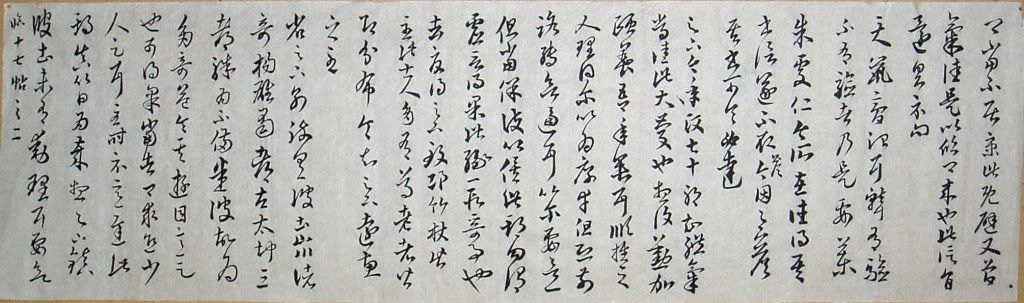 卿當以不居京此既避又節
氣佳是以欣卿來也此信旨
還具示問
天鼠膏治耳聾有驗
不有驗者乃是要藥
朱處仁今所在往得其
書信遂不取答今因足下答
其書可令必達
足下今年政七十耶知體氣
常佳此大慶也想復懃加
頤養吾年垂耳順推之
人理得爾以為厚幸但恐前
路轉欲逼耳以爾要欲一
但當保護以俟此期勿謂
虛言得果此緣一段奇事也
去夏得足下致邛竹杖皆
至此士人多有尊老者皆
即分布令知足下遠惠
之至
省足下別疏具彼土山川諸
奇揚雄蜀都左太沖三
都殊為不備悉彼故為
多奇益令其遊目意足
也可得果當告卿求迎少
人足耳至時示意遲此
期真以日為歲想足下鎮
彼土未有動理耳要欲
臨十七帖之二